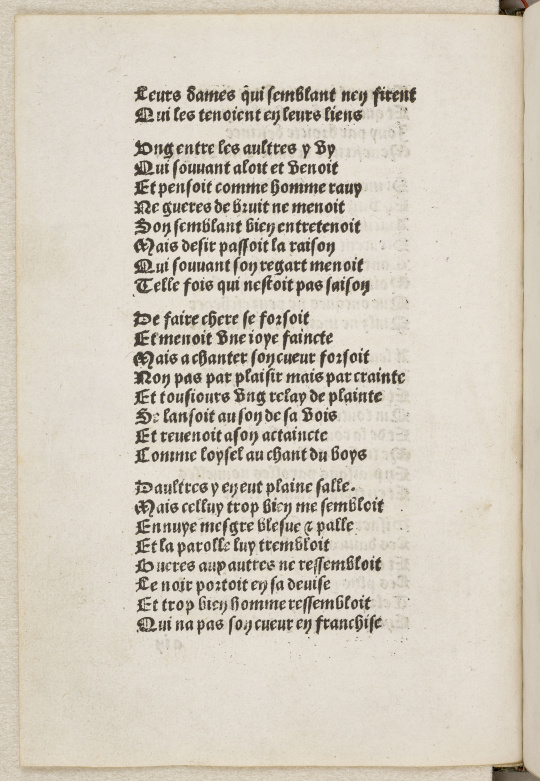 Leurs dames qui semblant ney firent
Qui les tenoient en leurs liens
Ung entre les aultres y vy
Qui souvant aloit et venoit
Et pensoit comme homme ravy
Ne gueres de bruit ne menoit
Son semblant bien entretenoit
Mais desir passoit la raison
Qui souvant son regart menoit
Telle fois qui nestoit pas saison
De faire chere se forsoit
Et menoit une ioye faincte
Mais a chanter son cueur forsoit
Non pas par plaisir mais par crainte
Et tousiours ung relay de plainte
Se lansoit au son de sa vois
Et revenoit ason actaincte
Comme loysel au chant du boys
Daultres y en eut plaine salle.
Mais celluy trop bien me sembloit
Ennuye mesgre blesue ⁊ palle
Et la parolle luy trembloit
Gueres aux autres ne ressembloit
Le noir portoit en sa devise
Et trop bien homme ressembloit
Qui na pas son cueur en franchise